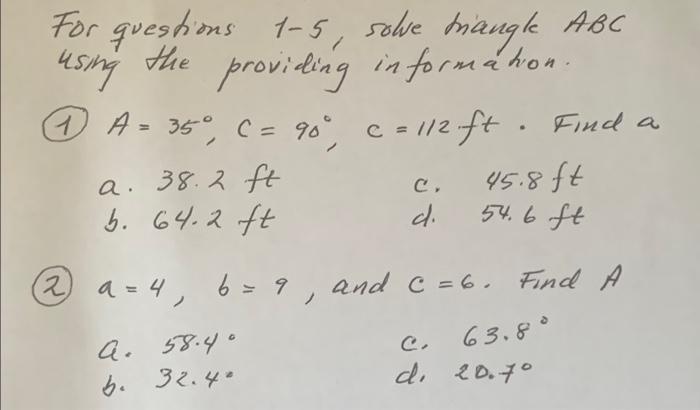 For questions 1-5, solve triangle ABC
using the providing information.
① A = 35°, C = 90°, c = 112 ft. Find a
a. 38.2 ft c. 45.8 ft
b. 64.2 ft d. 54.6 ft
② a = 4, b = 9, and c = 6. Find A
a. 58.4° c. 63.8°
b. 32.4° d. 20.7°